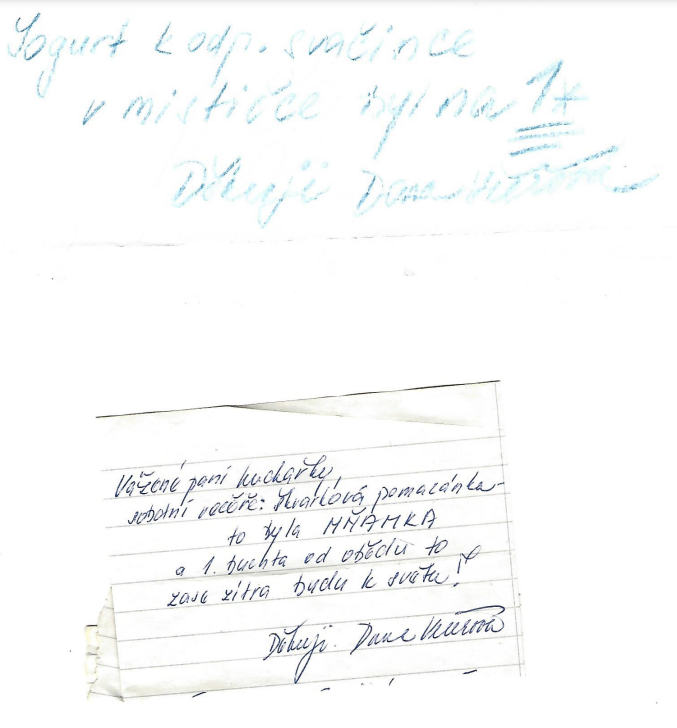 Jogurt k odp. svačince
v mističce byl na 1*
Děkuji Dana
Vážené paní kuchařky,
sobotní večeře: škvarková pomazánka
to byla MŇAMKA
a 1. buchta od obědu to
zase zítra budu k světu!
Děkuji. Dana